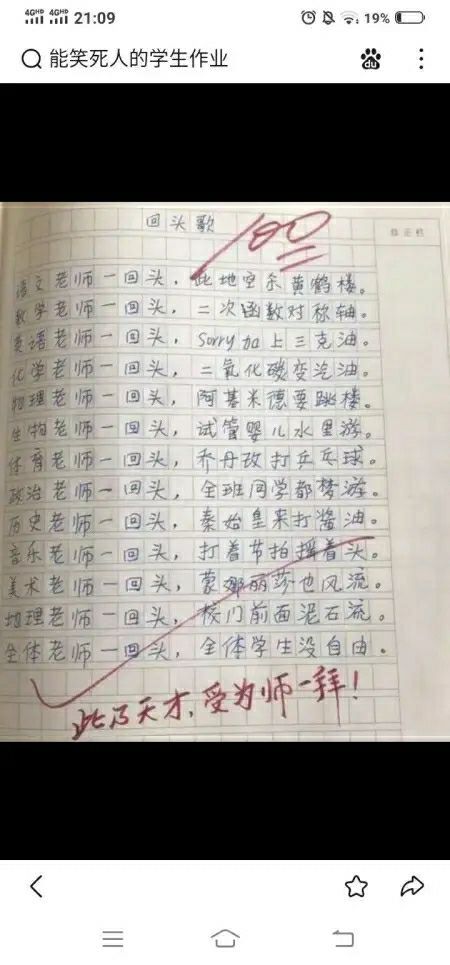 4GHD 4GHD 21:09 19%
能笑死人的学生作业
du
回头歌
100
语文老师一回头，此地空余黄鹤楼。
数学老师一回头，二次函数对称轴。
英语老师一回头，Sorry加上三克油。
化学老师一回头，二氧化碳变汽油。
物理老师一回头，阿基米德要跳楼。
生物老师一回头，试管婴儿水里游。
体育老师一回头，乔丹改打乒乓球。
政治老师一回头，全班同学都梦游。
历史老师一回头，秦始皇来打酱油。
音乐老师一回头，打着节拍摇着头。
美术老师一回头，蒙娜丽莎也风流。
地理老师一回头，校门前面泥石流。
全体老师一回头，全体学生没自由。
此乃天才，受为师一拜！